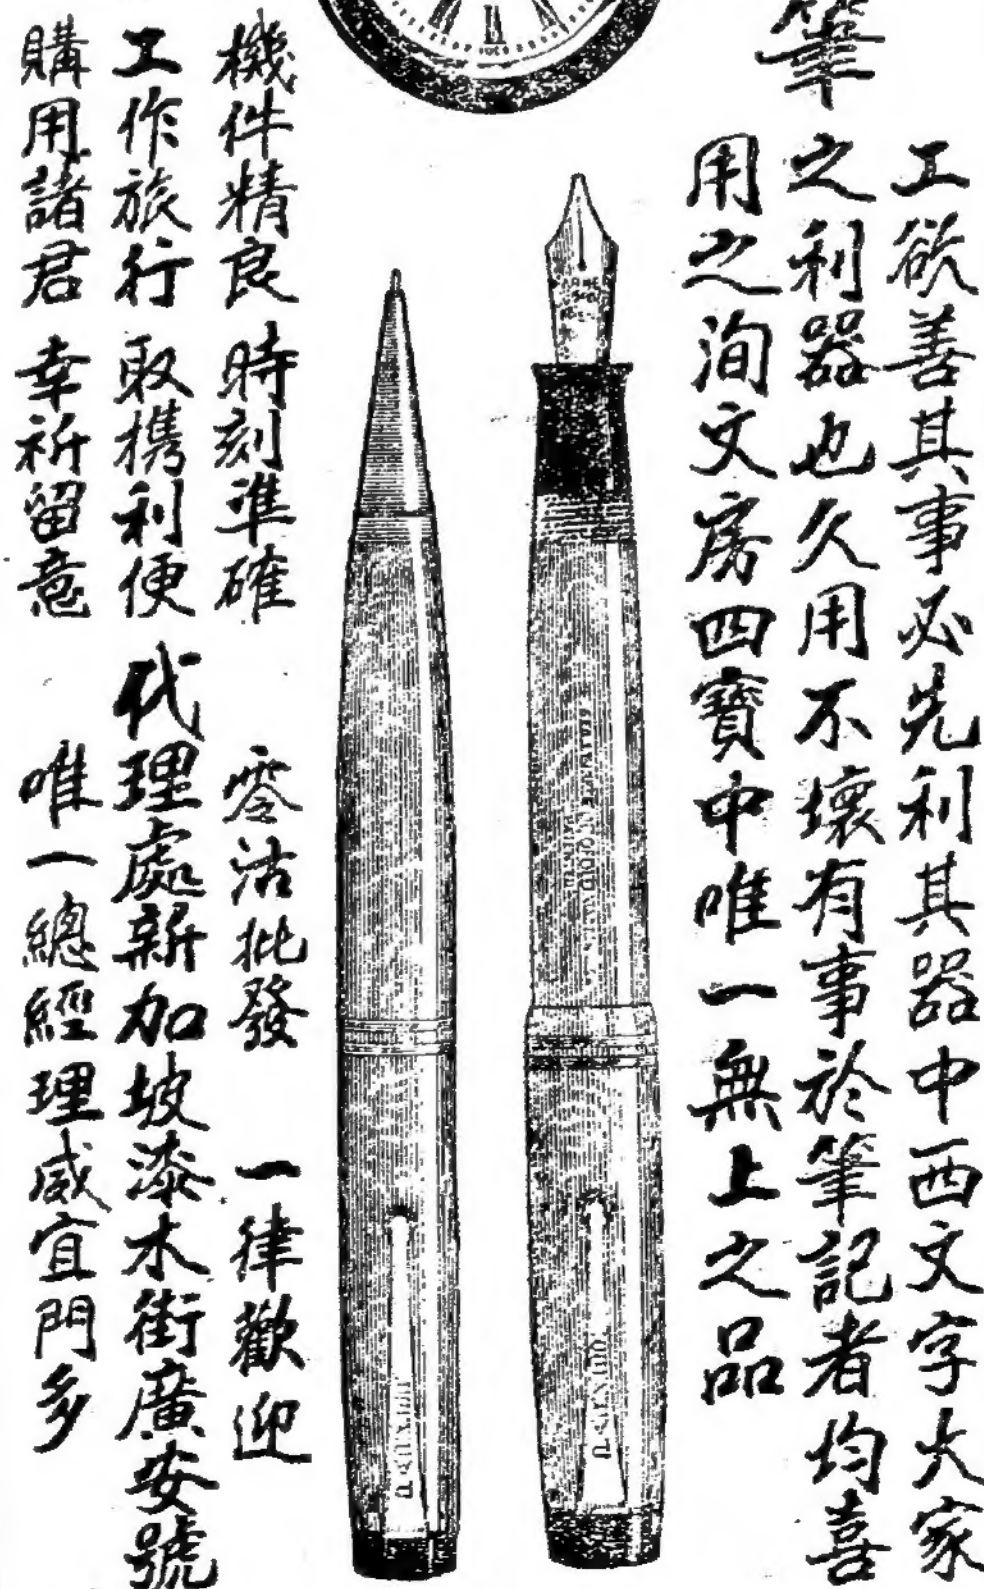 筆
工欲善其事必先利其器中西文字大家
之利器也久用不壞有事於筆記者均喜
用之洵文房四寶中唯一無上之品
PARKER
PARKER
機件精良 時刻準確
工作旅行 取携利便
購用諸君 幸祈留意
零沽批發 一律歡迎
代理處新加坡漆木街廣安號
唯一總經理威宜門多